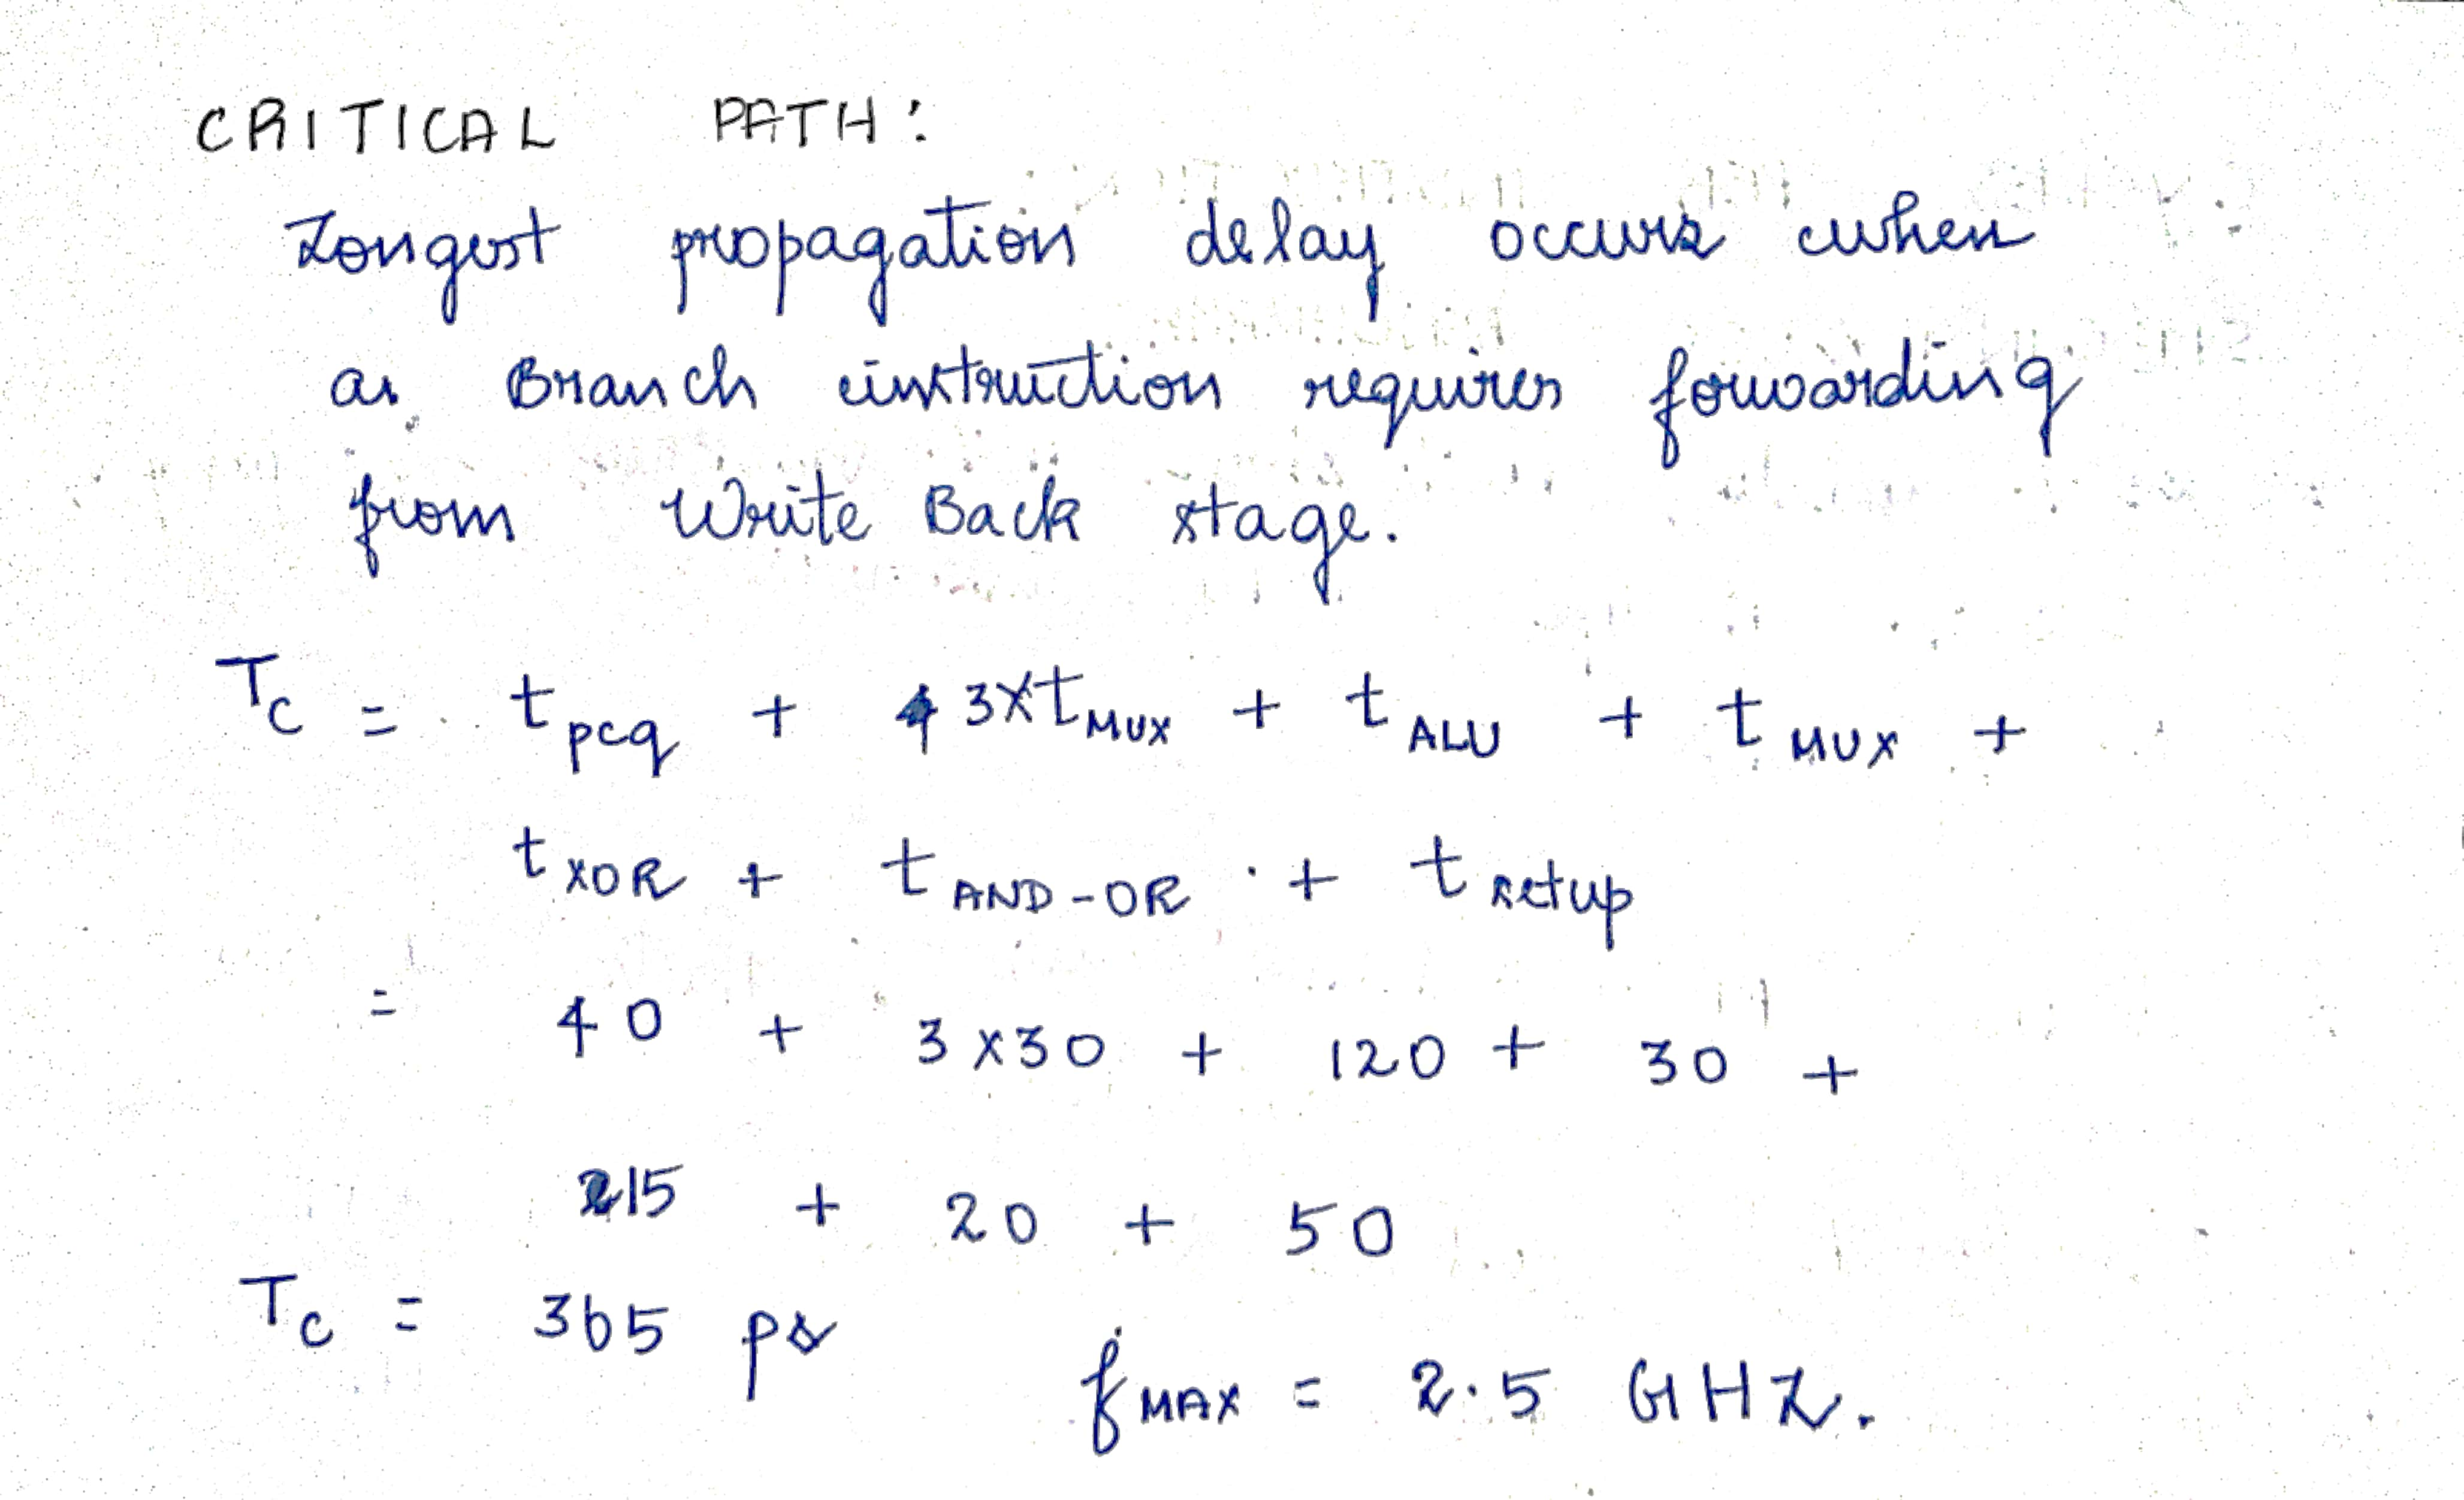 CRITICAL PATH:
Longest propagation delay occurs when
a Branch instruction requires forwarding
from Write Back stage.
Tc = tpcq + 3xtMUX + tALU + tMUX +
tXOR + tAND-OR + tsetup
= 40 + 3x30 + 120 + 30 +
15 + 20 + 50
Tc = 365 ps
fMAX = 2.5 GHZ.